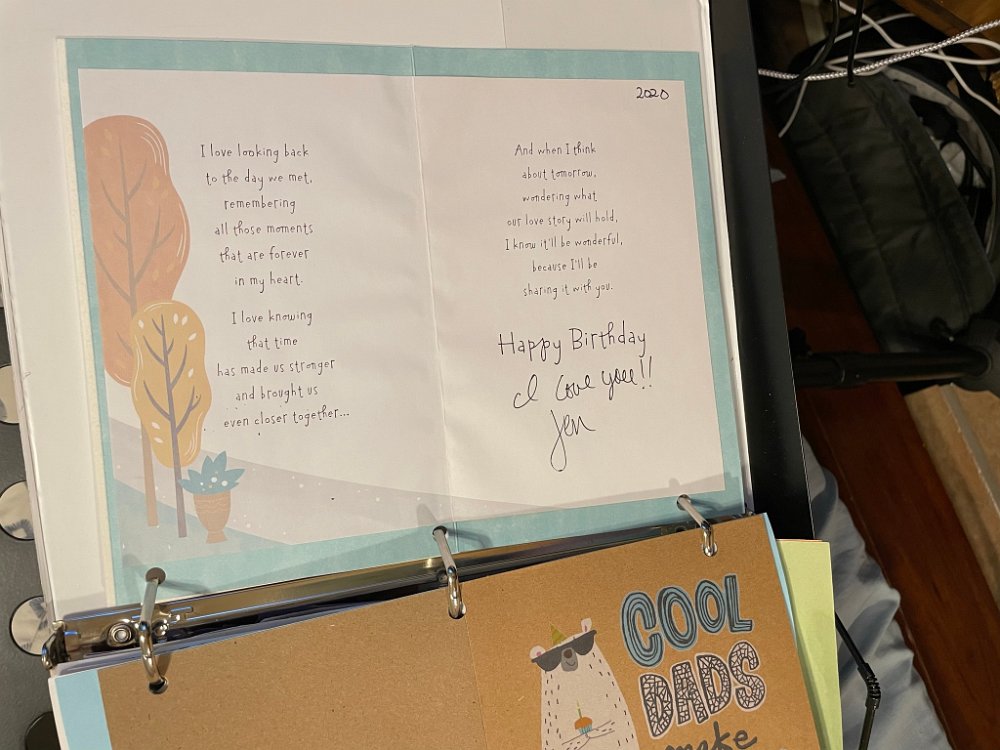 I love looking back
to the day we met,
remembering
all those moments
that are forever
in my heart.
I love knowing
that time
has made us stronger
and brought us
even closer together...
2020
And when I think
about tomorrow,
wondering what
our love story will hold,
I know it'll be wonderful,
because I'll be
sharing it with you.
Happy Birthday
I love you!!
Jen
COOL
DADS
make